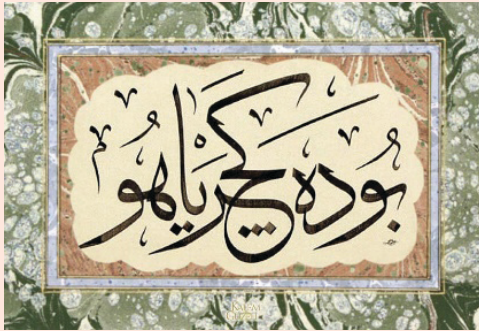 بوده كچر ياهو